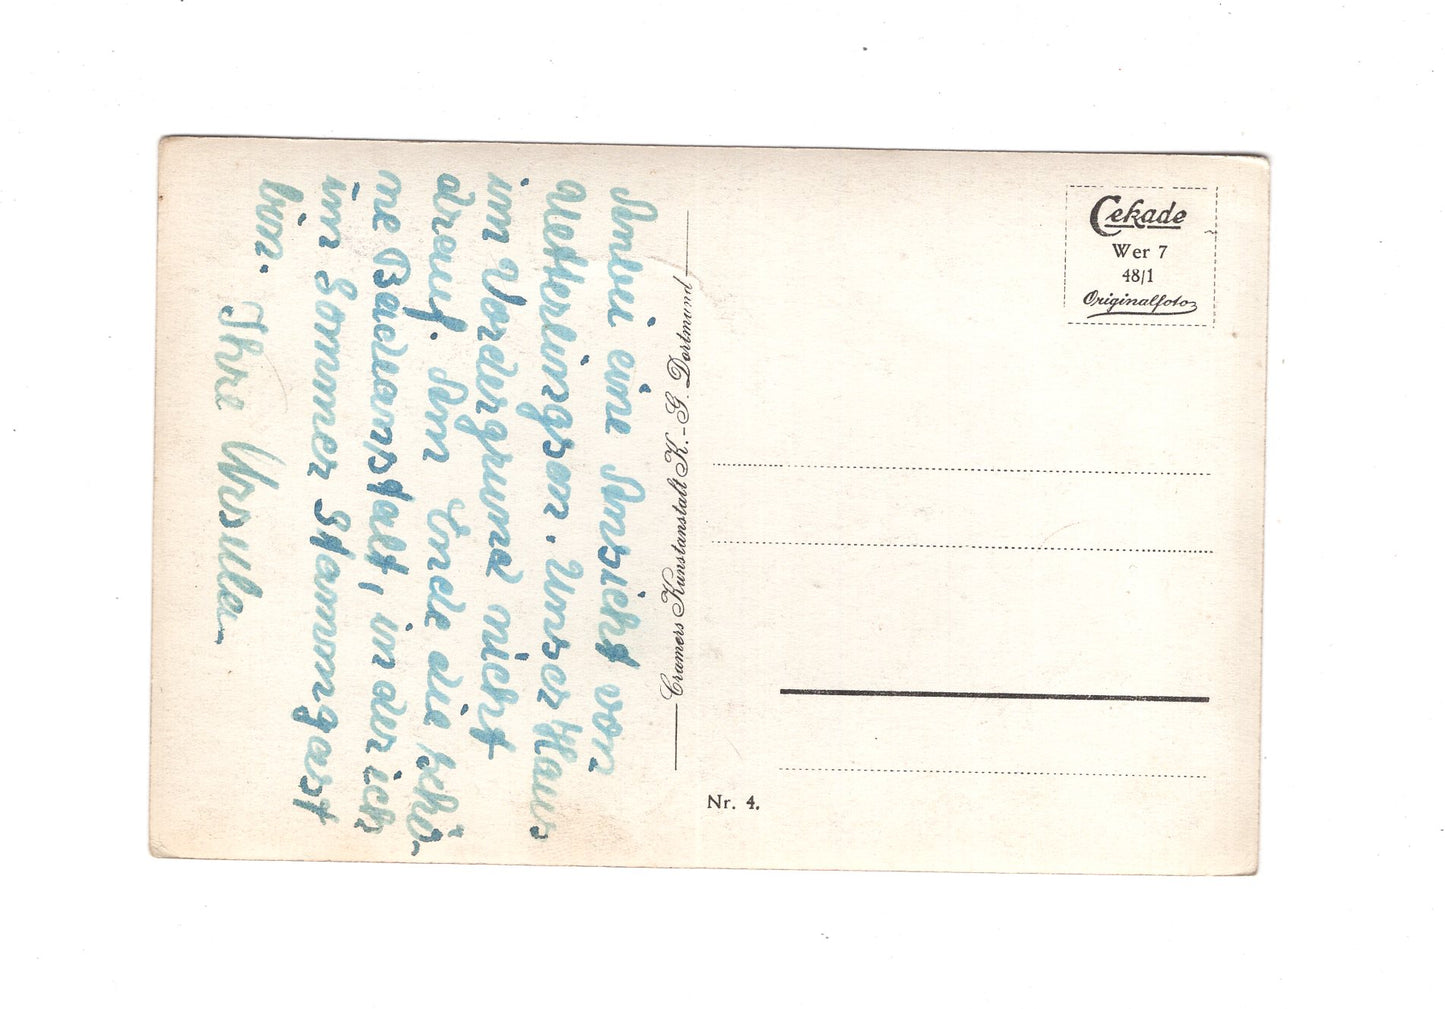 Anbei eine Ansicht von
Wetterlingsen. Unser Haus
im Vordergrund nicht
drauf. Am Ende die schö-
ne Badeanstalt, in der ich
im Sommer Stammgast
bin.
Ihre Ursula
Cramers Kunstanstalt K.-G. Dortmund
Cekade
Wer 7
48/1
Originalfoto
Nr. 4.